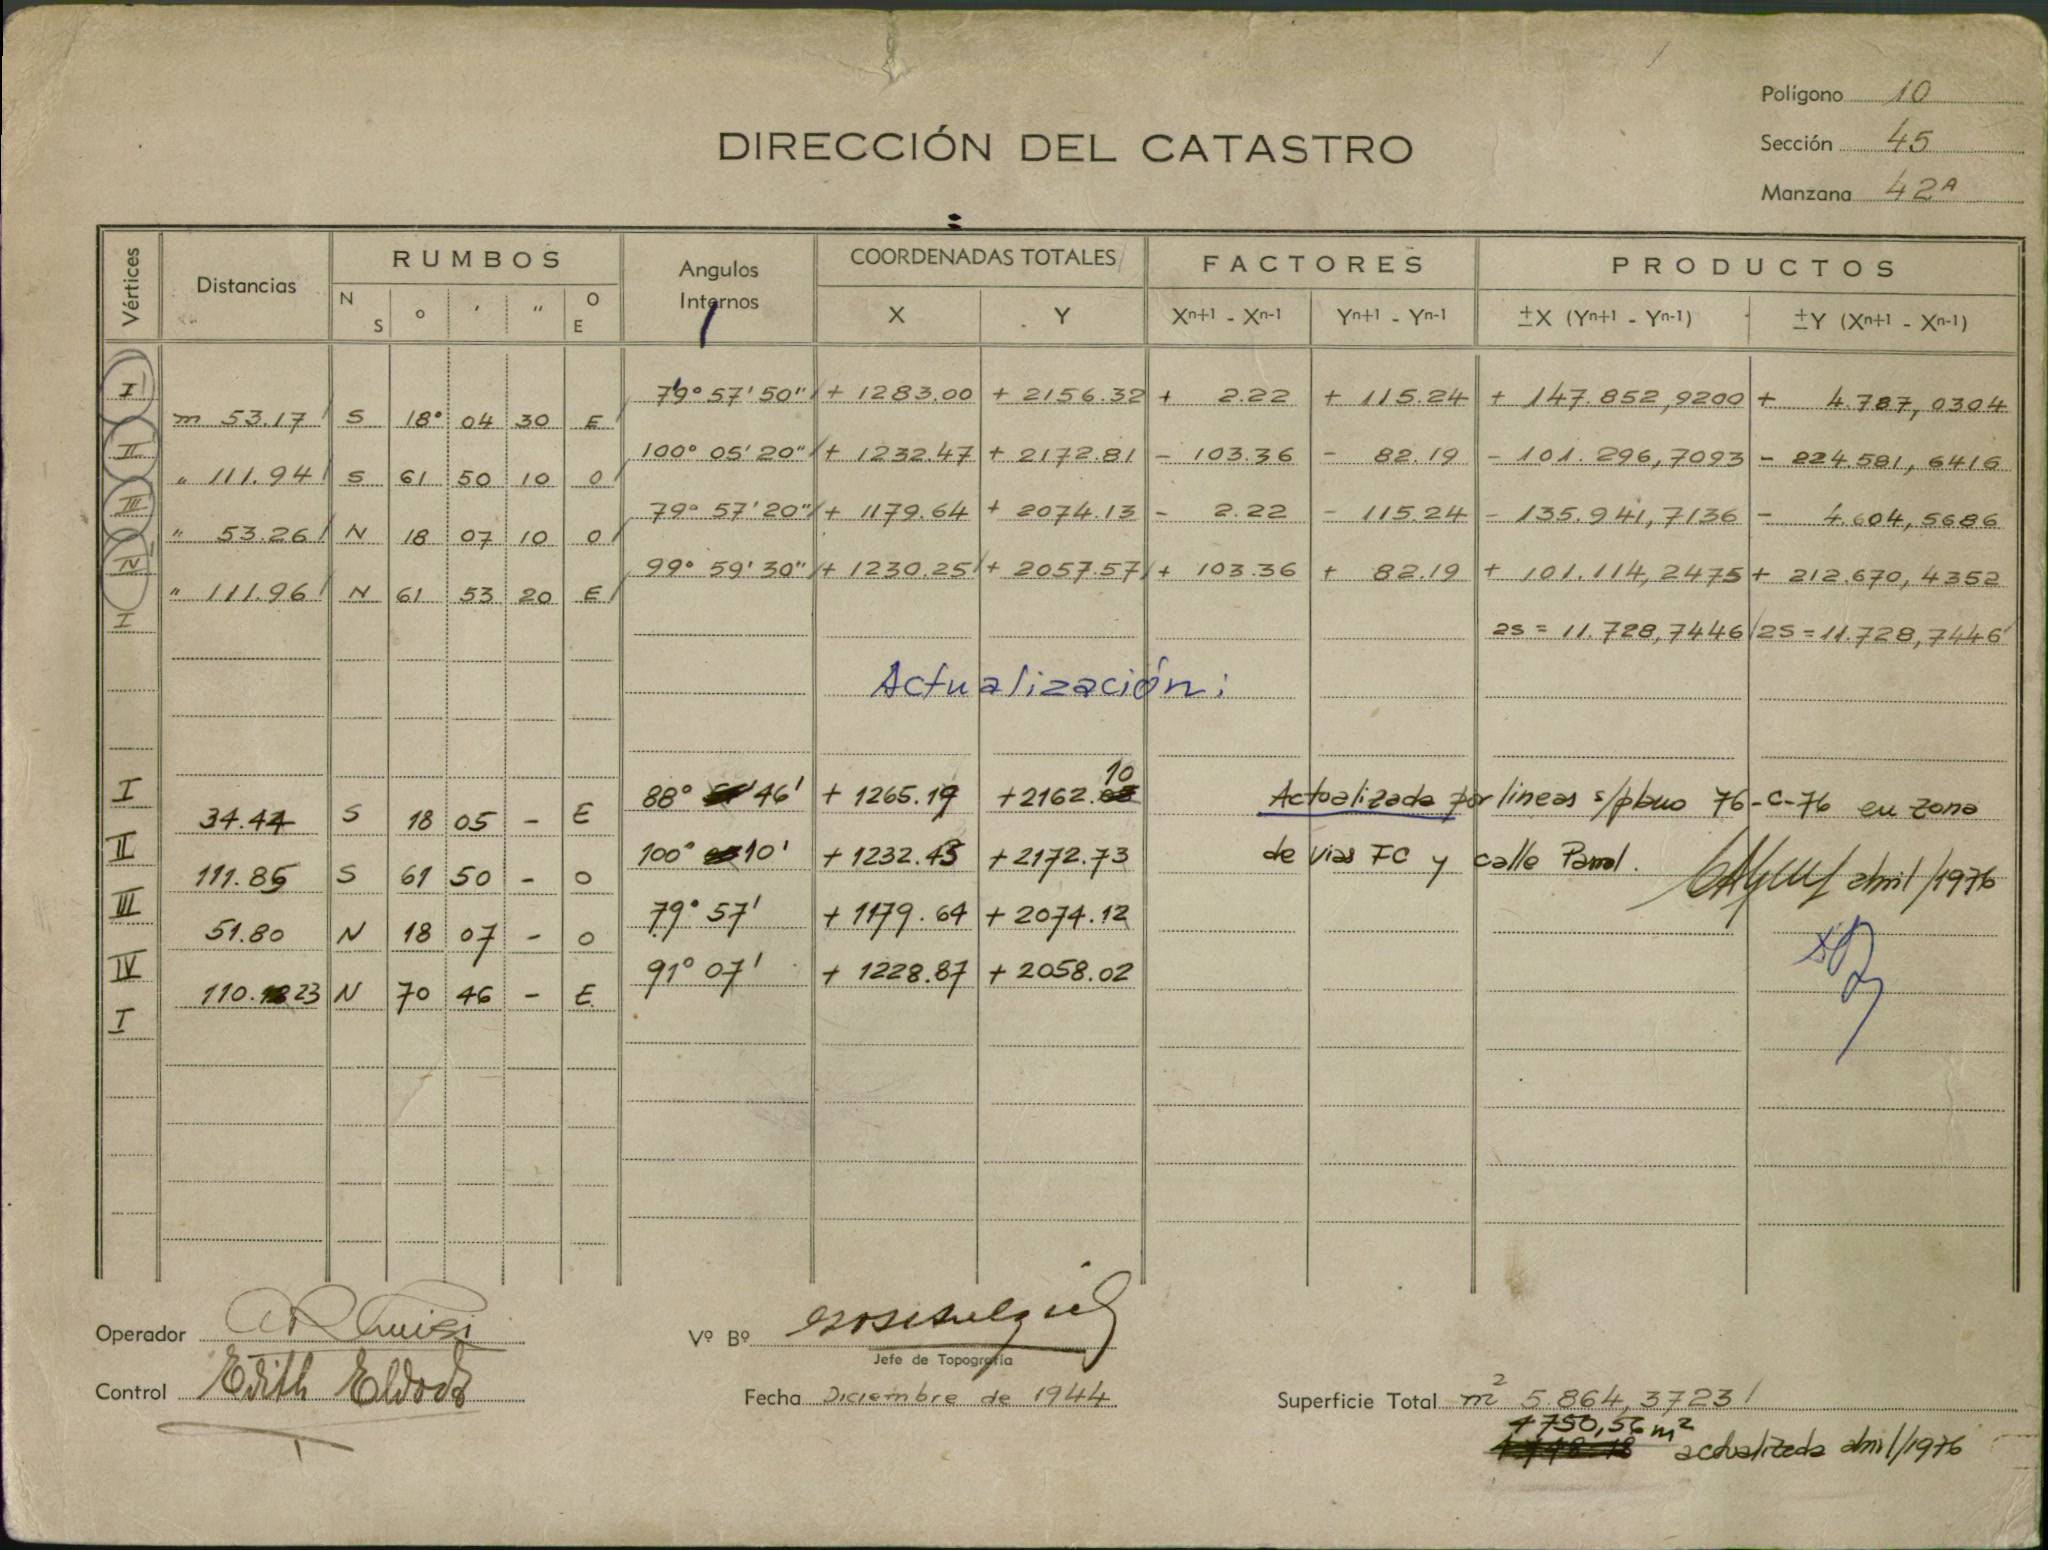 Polígono 10
DIRECCIÓN DEL CATASTRO
Sección 45
Manzana 42A
Vértices Distancias RUMBOS Angulos Internos COORDENADAS TOTALES FACTORES PRODUCTOS
N S ° ' " O E X Y Xn+1 - Xn-1 Yn+1 - Yn-1 ±X (Yn+1 - Yn-1) ±Y (Xn+1 - Xn-1)
I 79° 57' 50" + 1283.00 + 2156.32 + 2.22 + 115.24 + 147.852,9200 + 4.787,0304
m 53.17 S 18° 04 30 E
II 100° 05' 20" + 1232.47 + 2172.81 - 103.36 - 82.19 - 101.296,7093 - 224.581,6416
" 111.94 S 61 50 10 O
III 79° 57' 20" + 1179.64 + 2074.13 - 2.22 - 115.24 - 135.941,7136 - 4.604,5686
" 53.26 N 18 07 10 O
IV 99° 59' 30" + 1230.25 + 2057.57 + 103.36 + 82.19 + 101.114,2475 + 212.670,4352
" 111.96 N 61 53 20 E
I 2S = 11.728,7446 2S = 11.728,7446
Actualización:
I 88° 46' + 1265.19 + 2162.10 Actualizada por lineas s/plano 76-C-76 en zona
34.44 S 18 05 - E
II 100° 10' + 1232.43 + 2172.73 de vias FC y calle Parral.
111.86 S 61 50 - O abril/1976
III 79° 57' + 1179.64 + 2074.12
51.80 N 18 07 - O
IV 91° 07' + 1228.87 + 2058.02
110.23 N 70 46 - E
I
Operador
Vº Bº
Jefe de Topografía
Control Edith
Fecha Diciembre de 1944
Superficie Total m2 5.864,3723
4750,56 m2
actualizada abril/1976